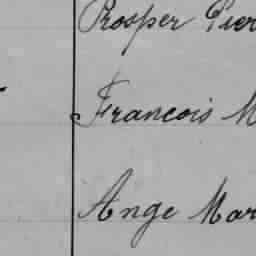 Prosper Pier
Francois M
Ange Mar